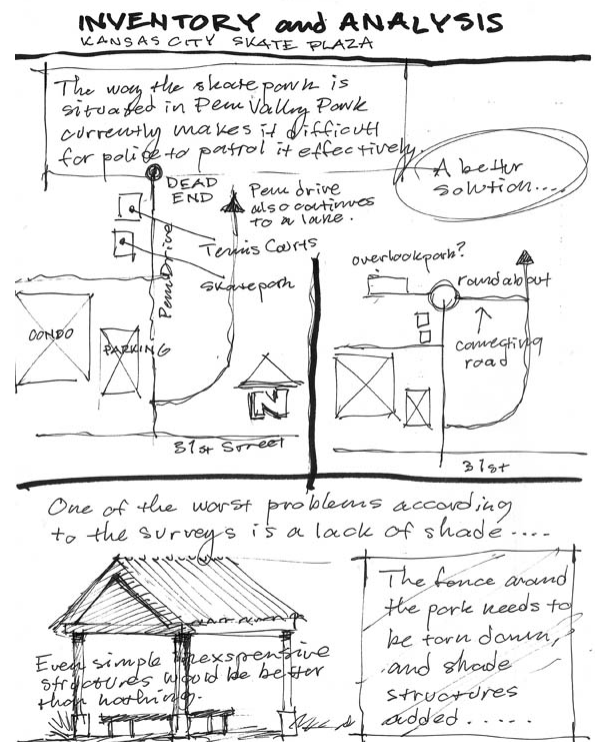 INVENTORY and ANALYSIS
KANSAS CITY SKATE PLAZA
The way the skatepark is
situated in Penn Valley Park
currently makes it difficult
for police to patrol it effectively.
A better
solution....
DEAD
END
Penn drive
also continues
to a lake.
Tennis Courts
Skatepark
Penn Drive
CONDO
PARKING
N
31st Street
overlook park?
roundabout
connecting
road
31st
One of the worst problems according
to the surveys is a lack of shade....
Even simple inexspensive
structures would be better
than nothing.
The fence around
the park needs to
be torn down,
and shade
structures
added......